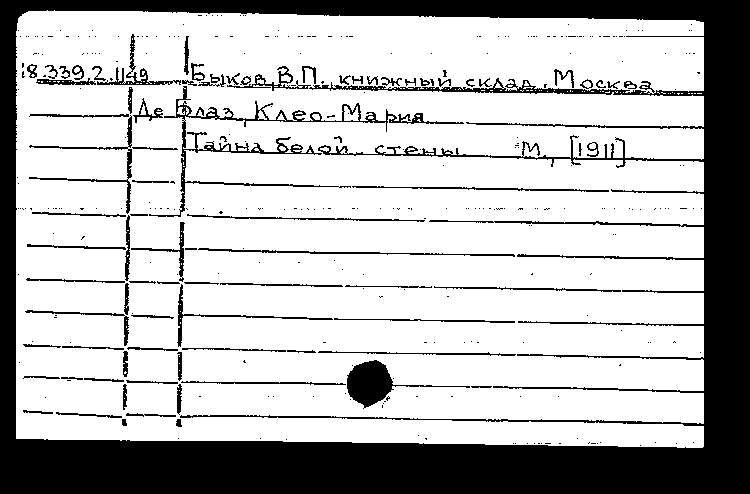 18.339.2.1149 Быков, В.П., книжный склад. Москва
Де Блаз, Клео-Мария
Тайна белой стены М., [1911]